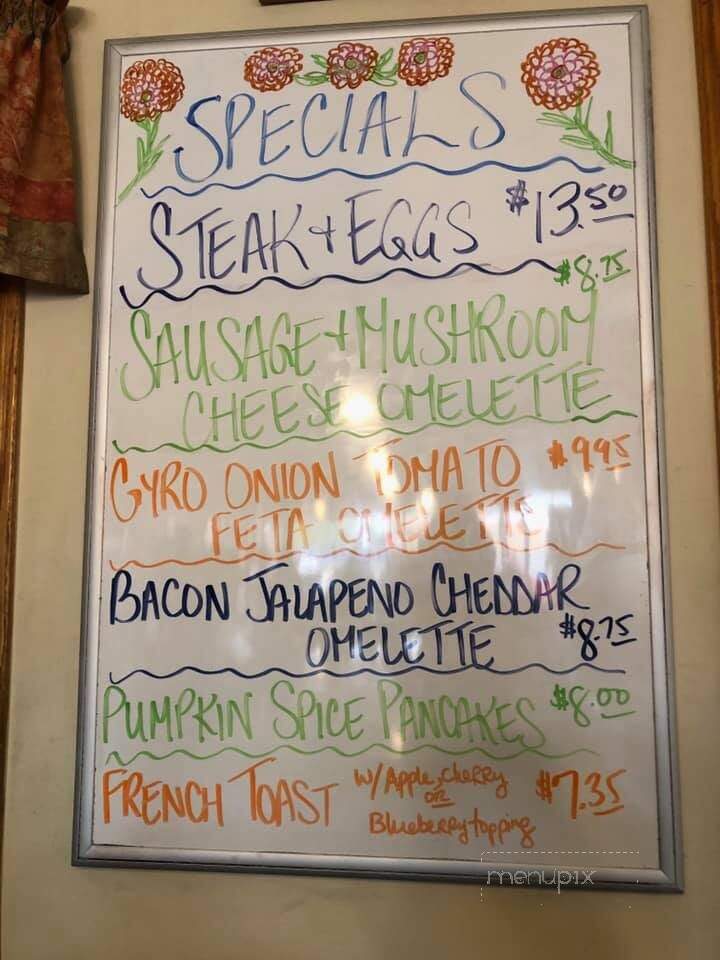 SPECIALS
STEAK + EGGS $13.50
$8.75
SAUSAGE + MUSHROOM
CHEESE OMELETTE
GYRO ONION TOMATO $9.95
FETA OMELETTE
BACON JALAPENO CHEDDAR
OMELETTE $8.75
PUMPKIN SPICE PANCAKES $8.00
FRENCH TOAST W/ Apple, Cherry $7.35
OR
Blueberry topping
menupix